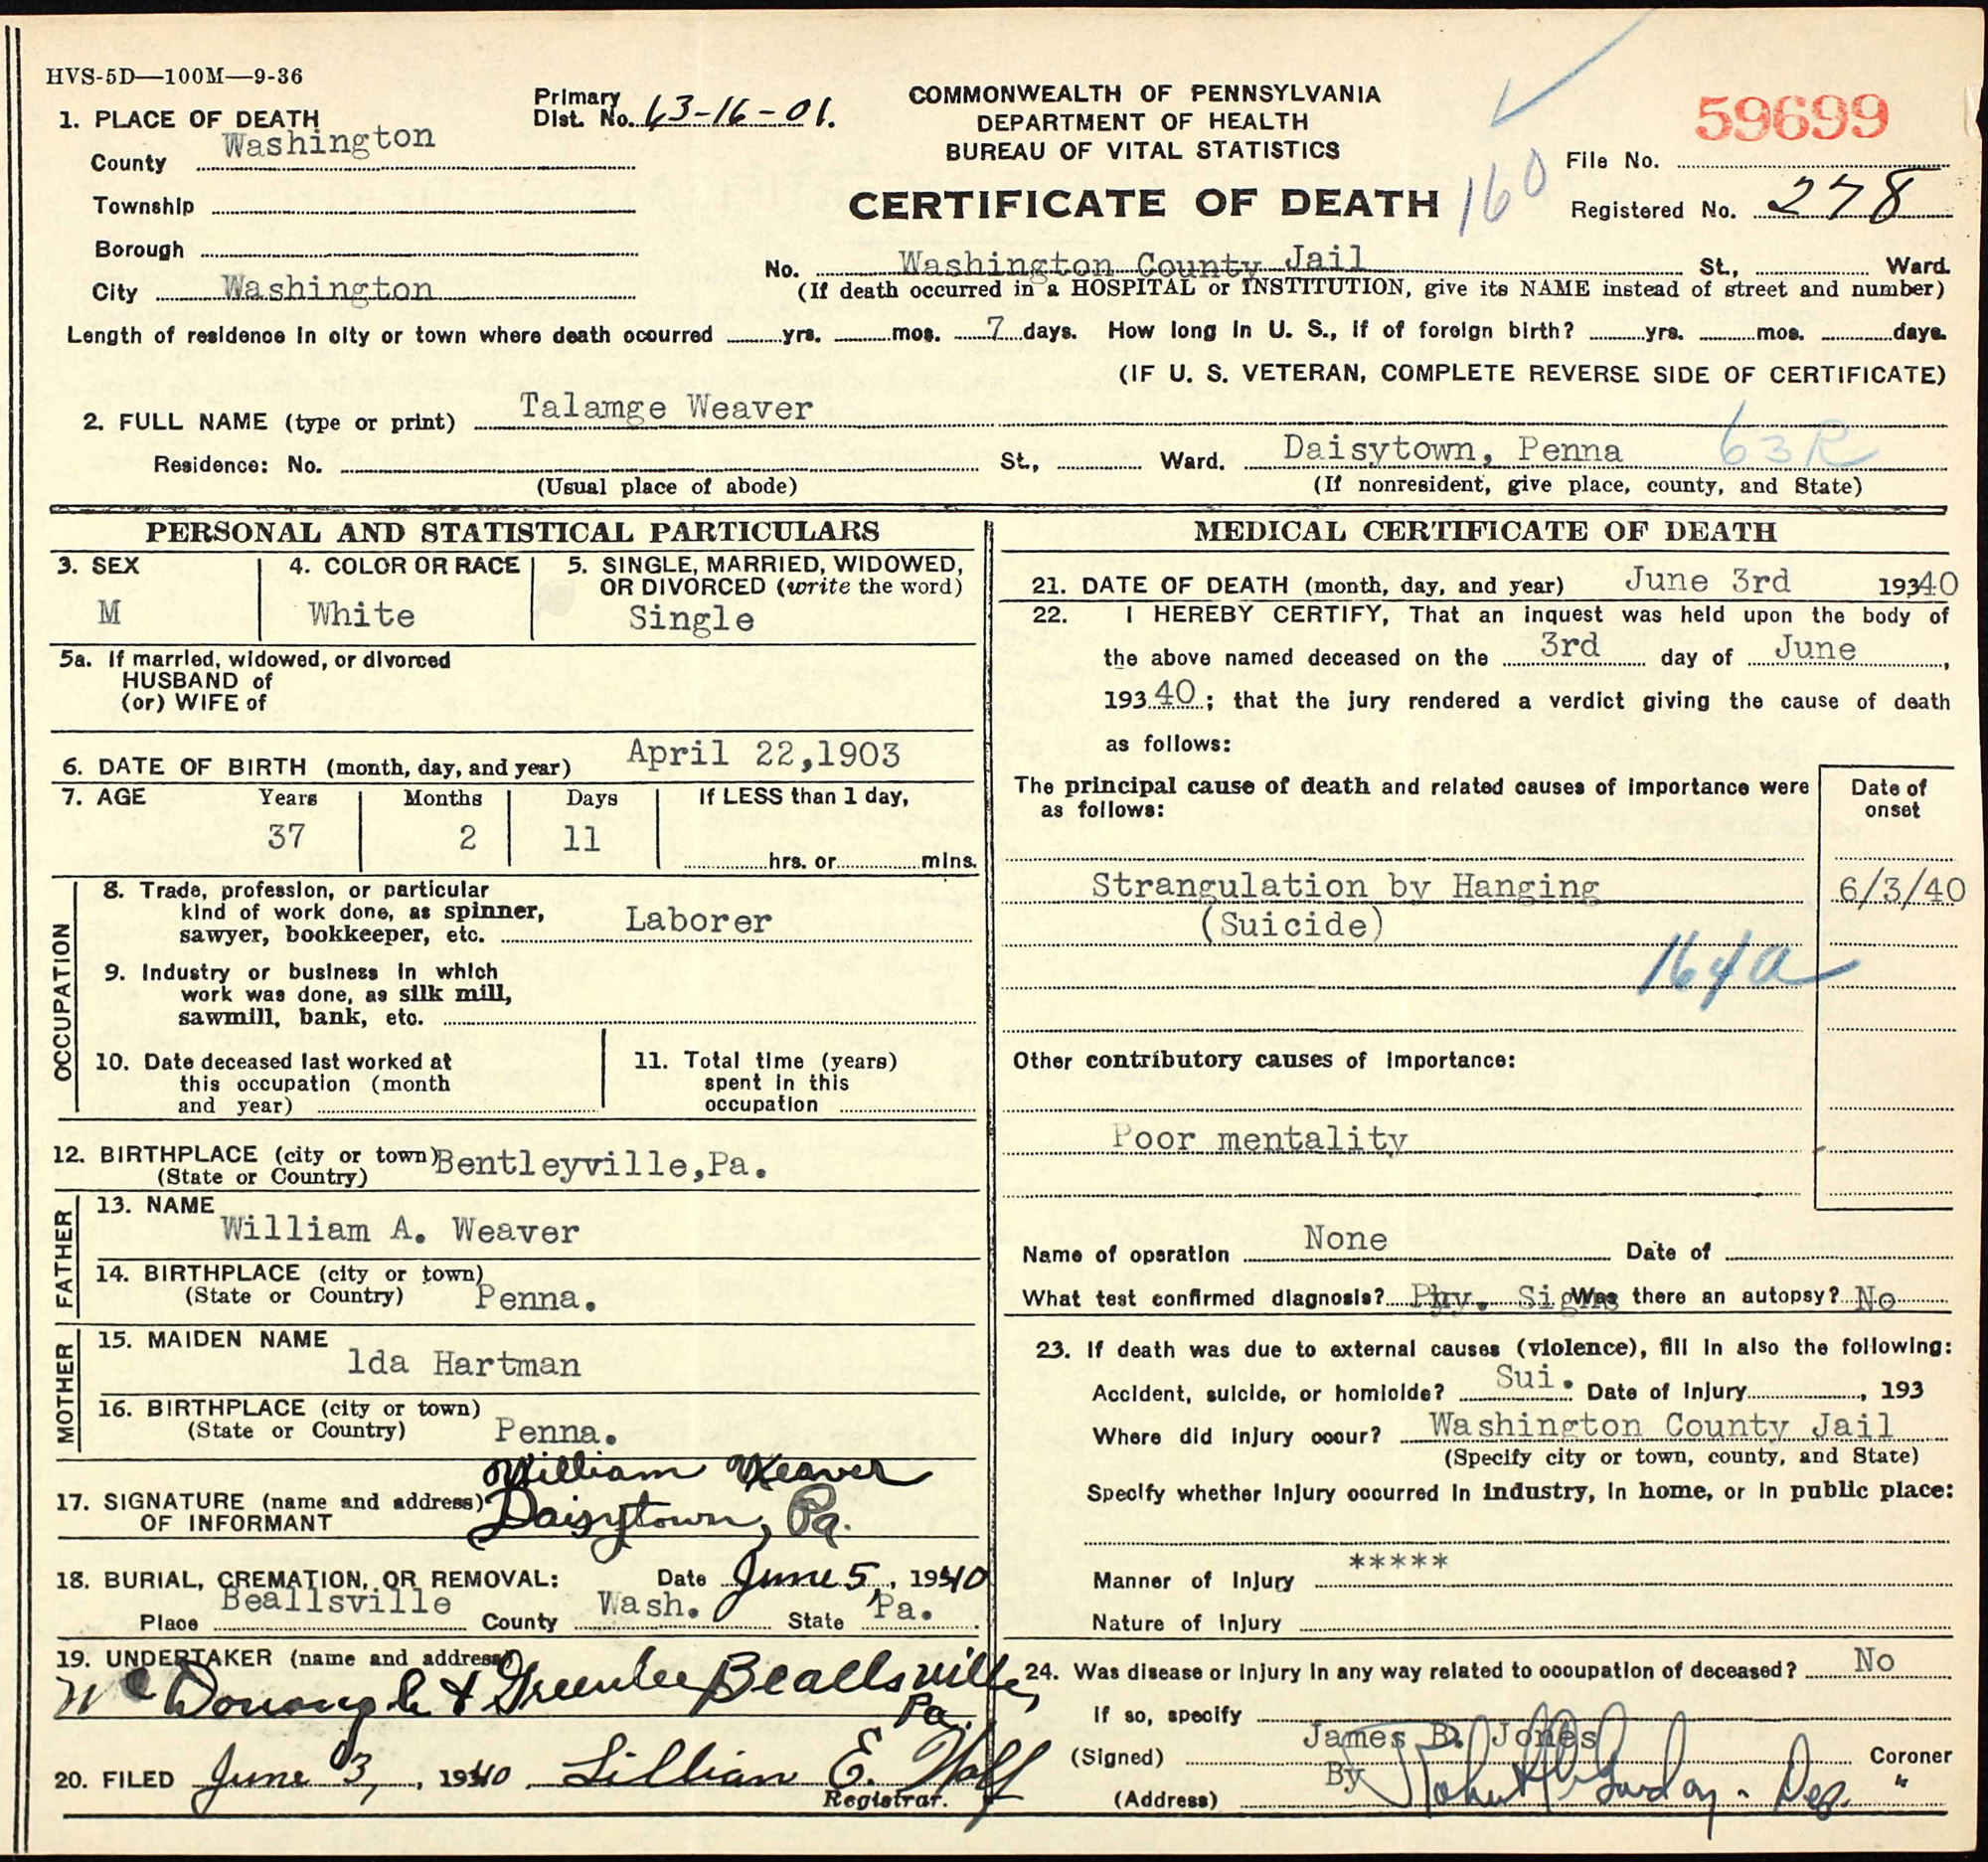 HVS-5D—100M—9-36
1. PLACE OF DEATH
County Washington
Township
Borough
City Washington
Primary Dist. No. 63-16-01.
COMMONWEALTH OF PENNSYLVANIA
DEPARTMENT OF HEALTH
BUREAU OF VITAL STATISTICS
CERTIFICATE OF DEATH
160
59699
File No.
Registered No. 278
No. Washington County Jail St., Ward.
(If death occurred in a HOSPITAL or INSTITUTION, give its NAME instead of street and number)
Length of residence in city or town where death occurred yrs. mos. 7 days. How long in U. S., if of foreign birth? yrs. mos. days.
(IF U. S. VETERAN, COMPLETE REVERSE SIDE OF CERTIFICATE)
2. FULL NAME (type or print) Talamge Weaver
Residence: No. St., Ward. Daisytown, Penna 63R
(Usual place of abode) (If nonresident, give place, county, and State)
PERSONAL AND STATISTICAL PARTICULARS
3. SEX
M
4. COLOR OR RACE
White
5. SINGLE, MARRIED, WIDOWED,
OR DIVORCED (write the word)
Single
5a. If married, widowed, or divorced
HUSBAND of
(or) WIFE of
6. DATE OF BIRTH (month, day, and year) April 22,1903
7. AGE Years Months Days If LESS than 1 day,
37 2 11 hrs. or mins.
OCCUPATION
8. Trade, profession, or particular
kind of work done, as spinner,
sawyer, bookkeeper, etc. Laborer
9. Industry or business in which
work was done, as silk mill,
sawmill, bank, etc.
10. Date deceased last worked at
this occupation (month
and year)
11. Total time (years)
spent in this
occupation
12. BIRTHPLACE (city or town) Bentleyville,Pa.
(State or Country)
FATHER
13. NAME
William A. Weaver
14. BIRTHPLACE (city or town)
(State or Country) Penna.
MOTHER
15. MAIDEN NAME
lda Hartman
16. BIRTHPLACE (city or town)
(State or Country) Penna.
William Weaver
17. SIGNATURE (name and address) Daisytown, Pa.
OF INFORMANT
18. BURIAL, CREMATION, OR REMOVAL: Date June 5, 1940
Place Beallsville County Wash. State Pa.
19. UNDERTAKER (name and address)
McDonough & Greenlee Beallsville,
Pa.
20. FILED June 3, , 1940 Lillian E. Wolf
Registrar.
MEDICAL CERTIFICATE OF DEATH
21. DATE OF DEATH (month, day, and year) June 3rd 19340
22. I HEREBY CERTIFY, That an inquest was held upon the body of
the above named deceased on the 3rd day of June ,
193 40 ; that the jury rendered a verdict giving the cause of death
as follows:
The principal cause of death and related causes of importance were
as follows:
Date of
onset
Strangulation by Hanging 6/3/40
(Suicide)
164a
Other contributory causes of importance:
Poor mentality
Name of operation None Date of
What test confirmed diagnosis? Phy. Signs Was there an autopsy? No
23. If death was due to external causes (violence), fill in also the following:
Accident, suicide, or homicide? Sui. Date of injury , 193
Where did injury occur? Washington County Jail
(Specify city or town, county, and State)
Specify whether injury occurred in industry, in home, or in public place:
Manner of injury *****
Nature of injury
24. Was disease or injury in any way related to occupation of deceased? No
If so, specify
(Signed) James B. Jones Coroner
By Dep. "
(Address)